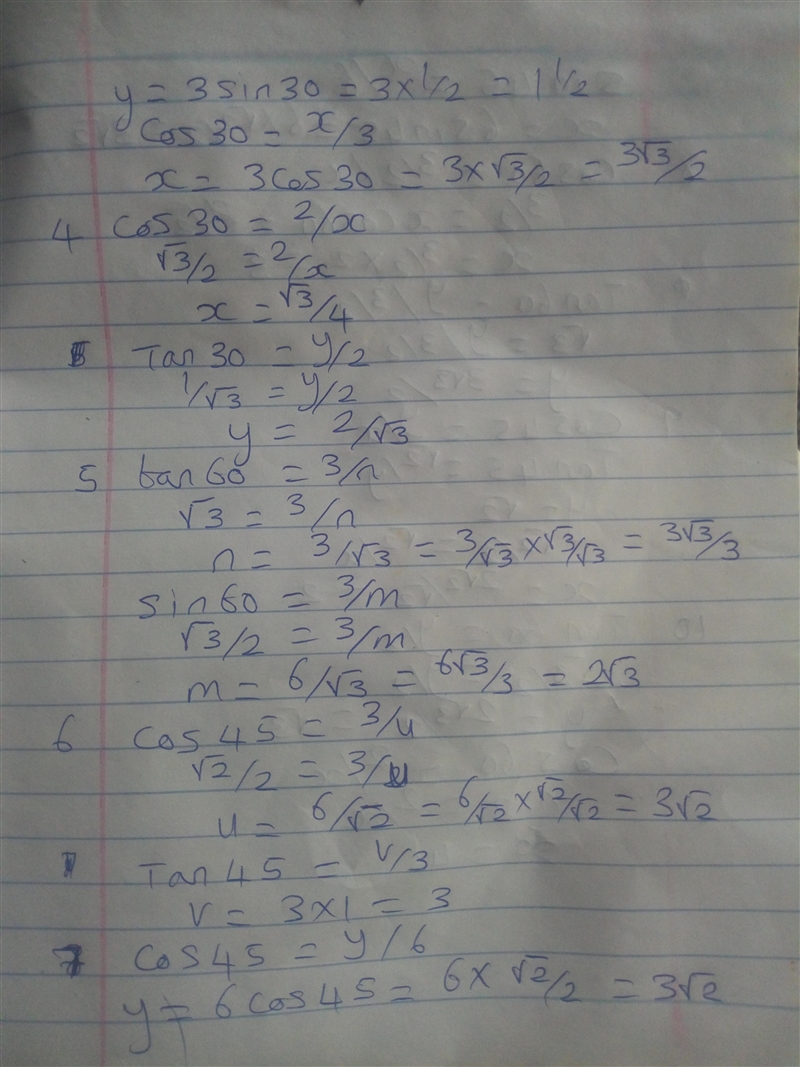 y = 3sin30 = 3x1/2 = 1 1/2
Cos30 = x/3
x = 3Cos30 = 3x√3/2 = 3√3/2
4 Cos30 = 2/x
√3/2 = 2/x
x = √3/4
Tan30 = y/2
1/√3 = y/2
y = 2/√3
5 tan60 = 3/n
√3 = 3/n
n = 3/√3 = 3/√3 x √3/√3 = 3√3/3
sin60 = 3/m
√3/2 = 3/m
m = 6/√3 = 6√3/3 = 2√3
6 Cos45 = 3/u
√2/2 = 3/u
u = 6/√2 = 6/√2 x √2/√2 = 3√2
Tan45 = v/3
v = 3x1 = 3
7 Cos45 = y/6
y = 6cos45 = 6x √2/2 = 3√2